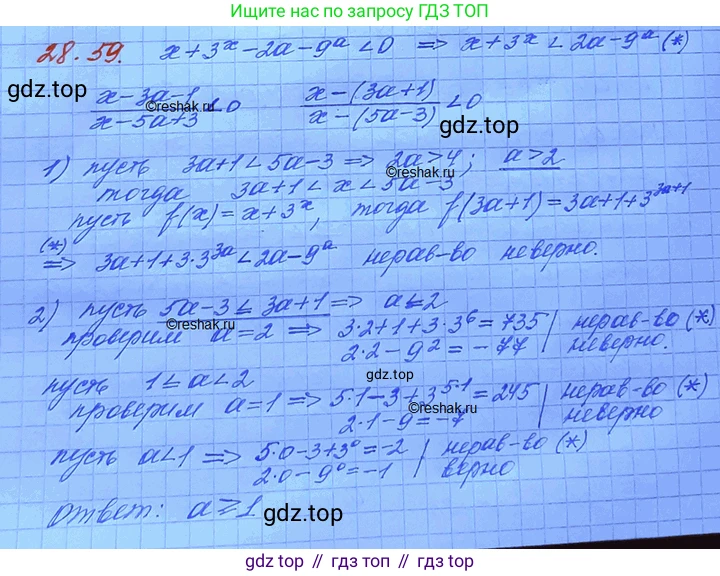 Ищите решебник по запросу ГДЗ ТОП
28.59. x+3^x-2a-9^a<0 => x+3^x<2a-9^a (*)
gdz.top
(x-3a-1)/(x-5a+3)<0 (x-(3a+1))/(x-(5a-3))<0
©reshak.ru
gdz.top
1) пусть 3a+1<5a-3 => 2a>4; a>2
тогда 3a+1<x<5a-3
пусть f(x)=x+3^x, тогда f(3a+1)=3a+1+3^(3a+1)
(*) => 3a+1+3·3^(3a)<2a-9^a нерав-во неверно.
2) пусть 5a-3≤3a+1 => a≤2
©reshak.ru
проверим a=2 => 3·2+1+3·3^6=735 | нерав-во (*)
2·2-9^2=-77 | неверно.
gdz.top
пусть 1≤a<2
проверим a=1 => 5·1-3+3^(5·1)=245 | нерав-во (*)
2·1-9=-7 | неверно
©reshak.ru
пусть a<1 => 5·0-3+3^0=-2 | нерав-во (*)
2·0-9^0=-1 | верно
Ответ: a≥1
gdz.top
gdz.top // гдз топ // гдз.топ // gdz top